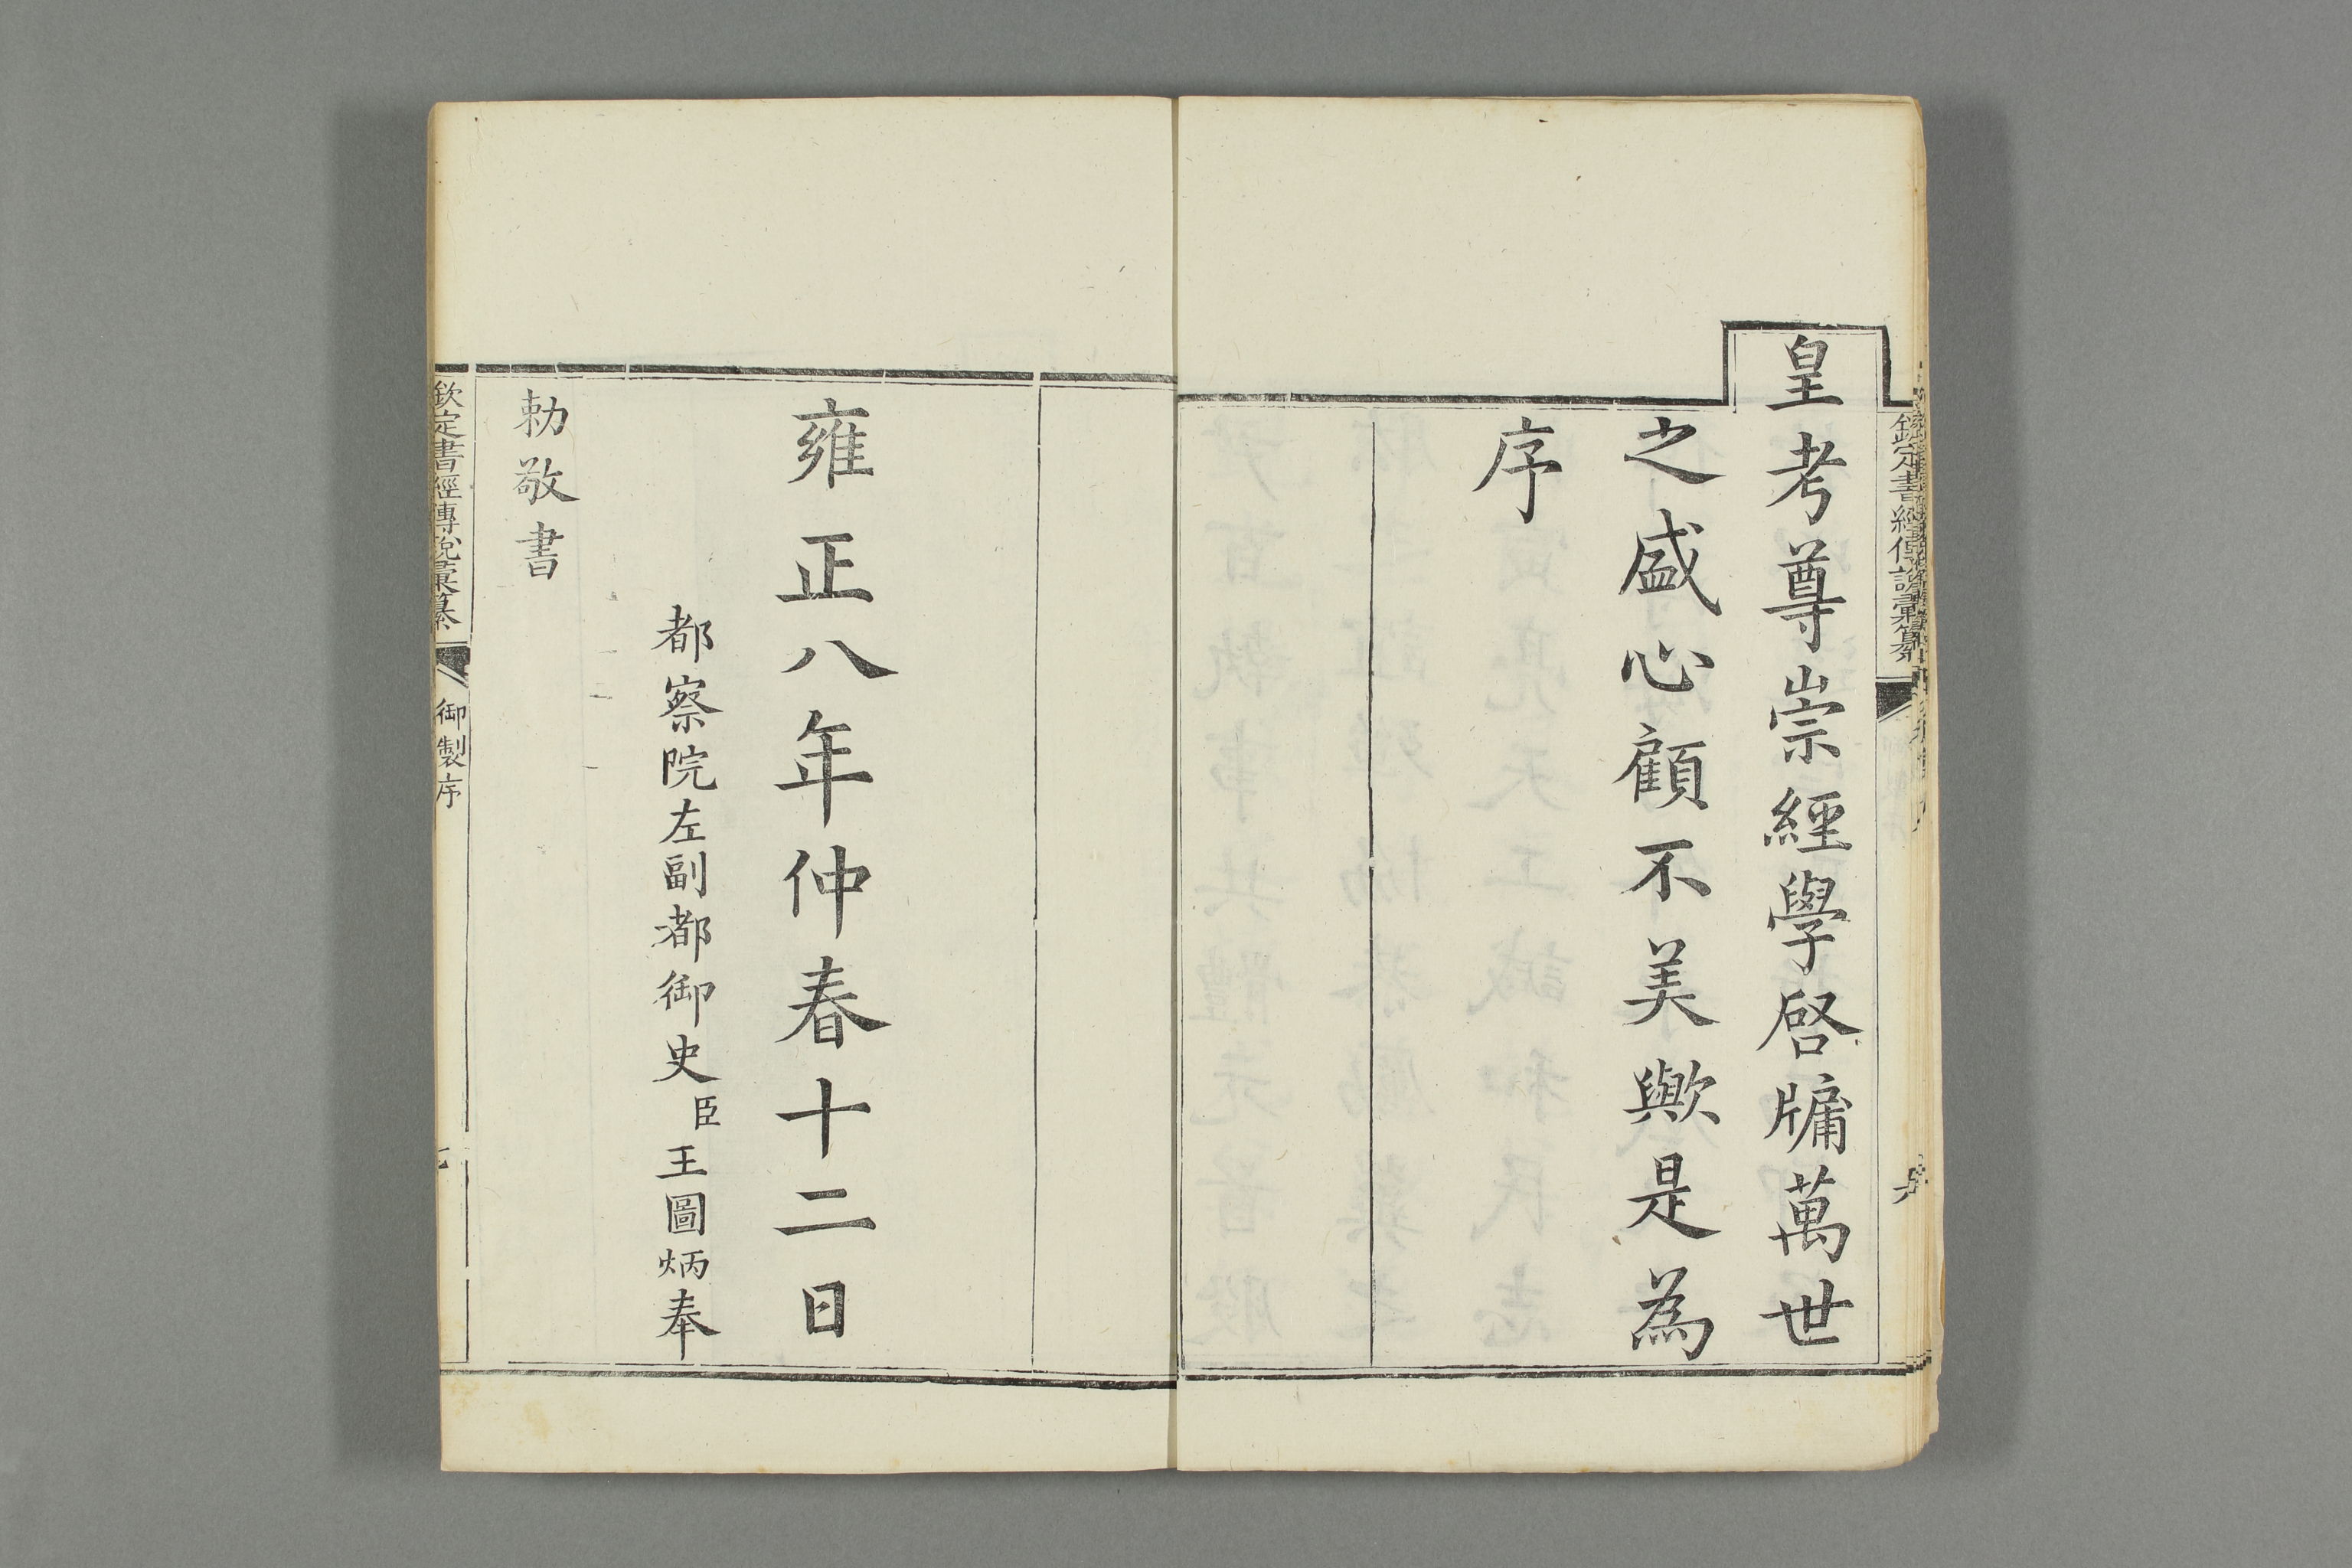 皇考尊崇經學啓牖萬世
之盛心顧不美歟是為
序
雍正八年仲春十二日
都察院左副都御史臣王圖炳奉
勅敬書
欽定書經傳說彙纂 御製序